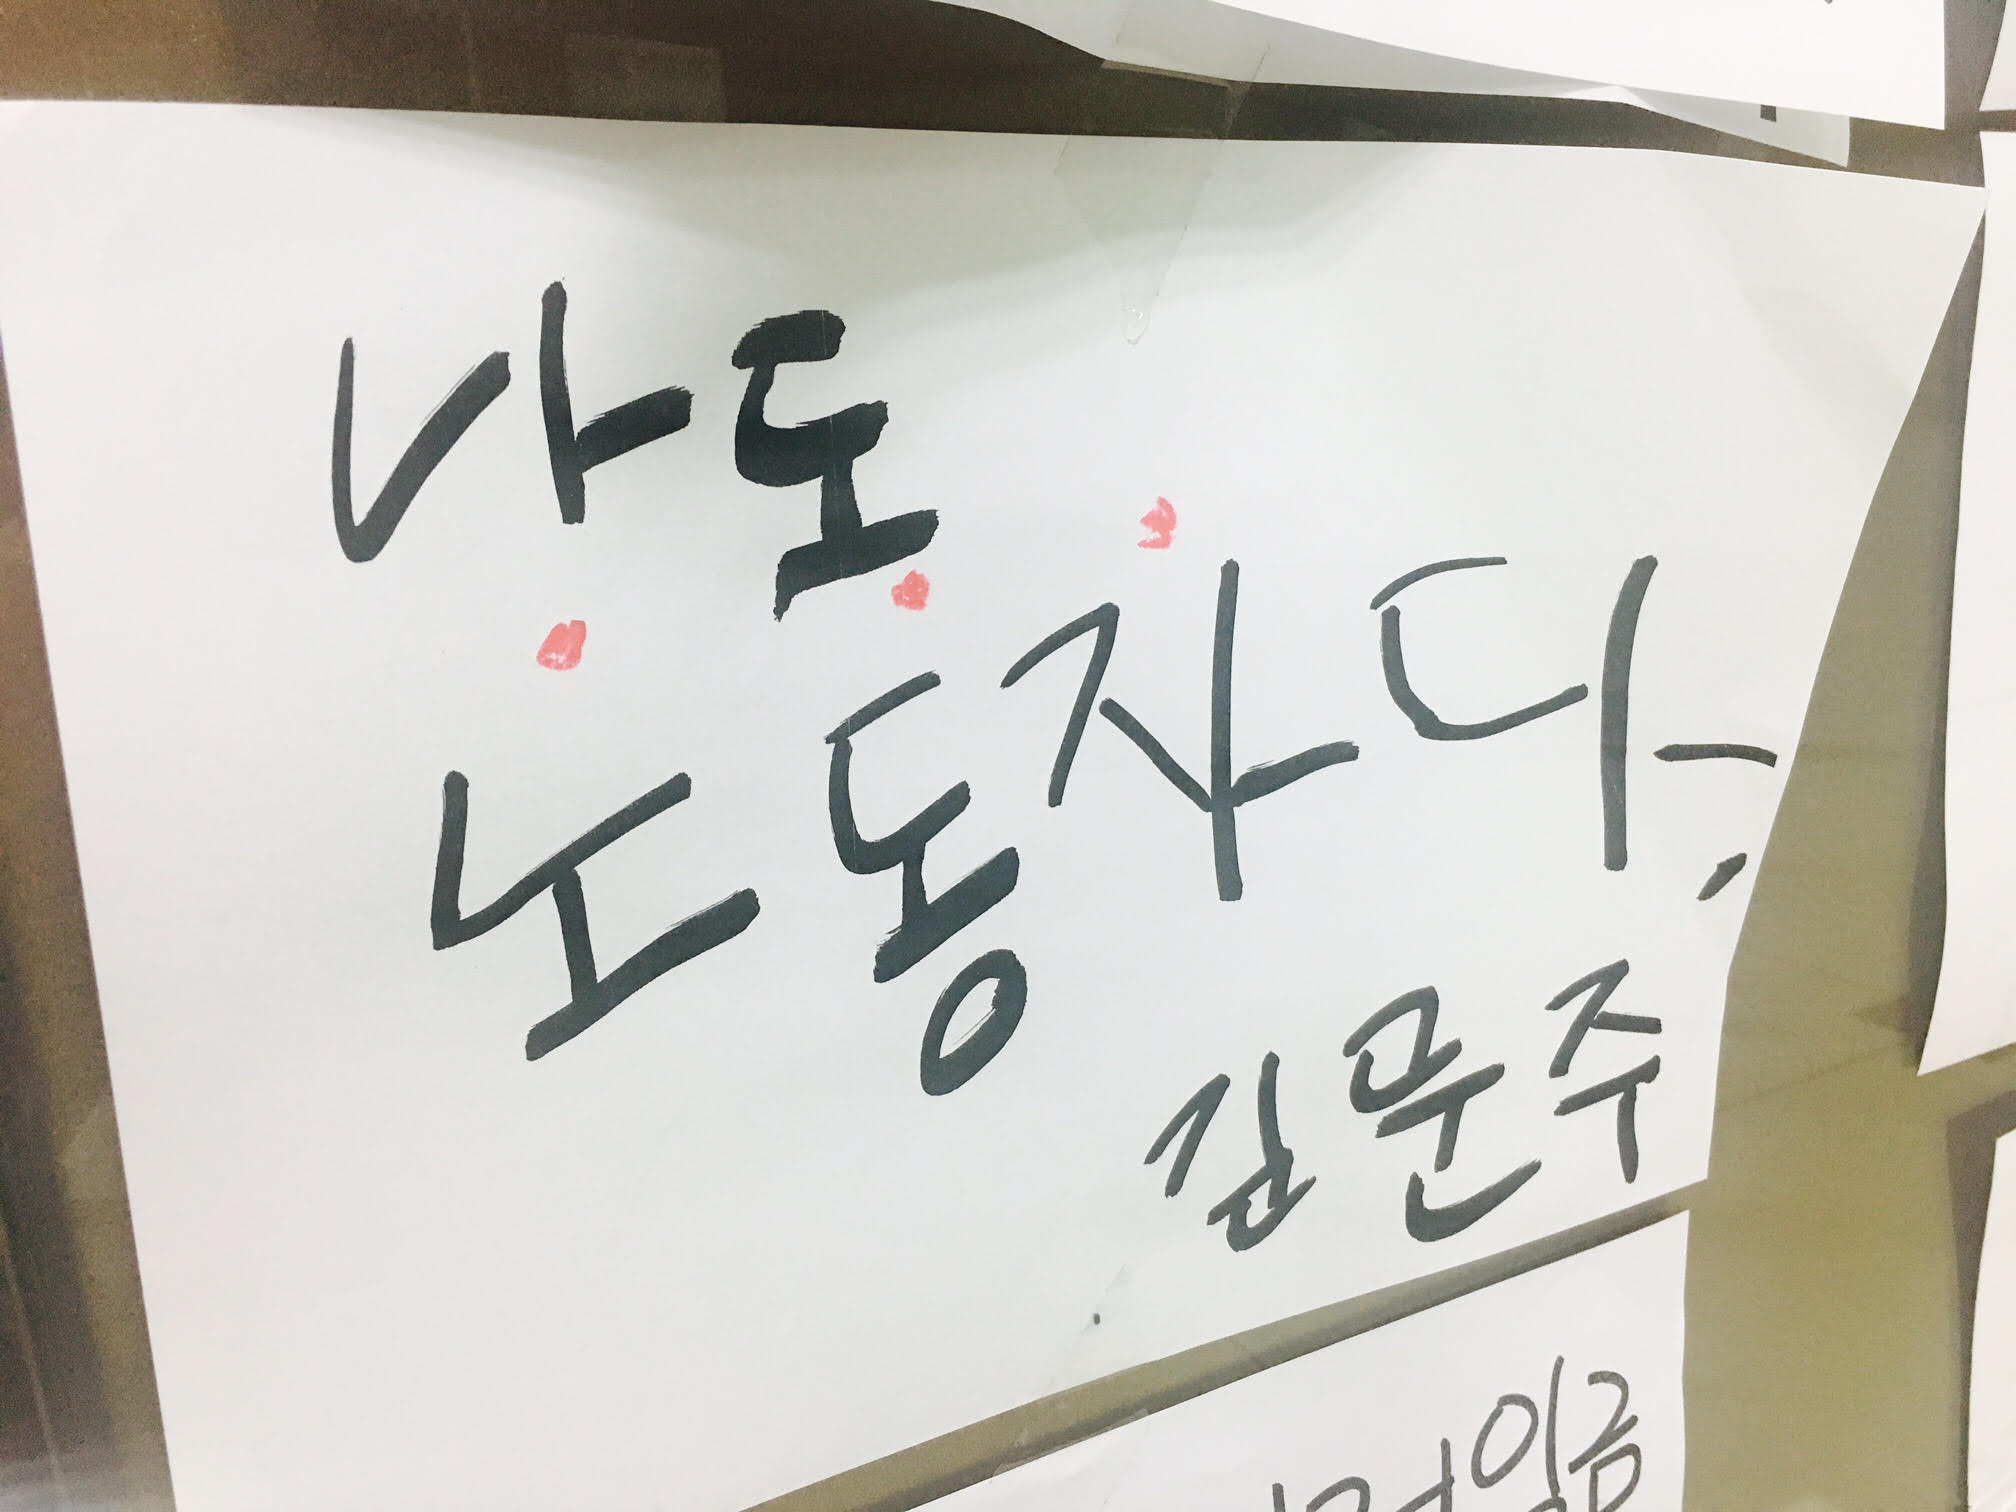 나도
노동자다.
김문주
임금